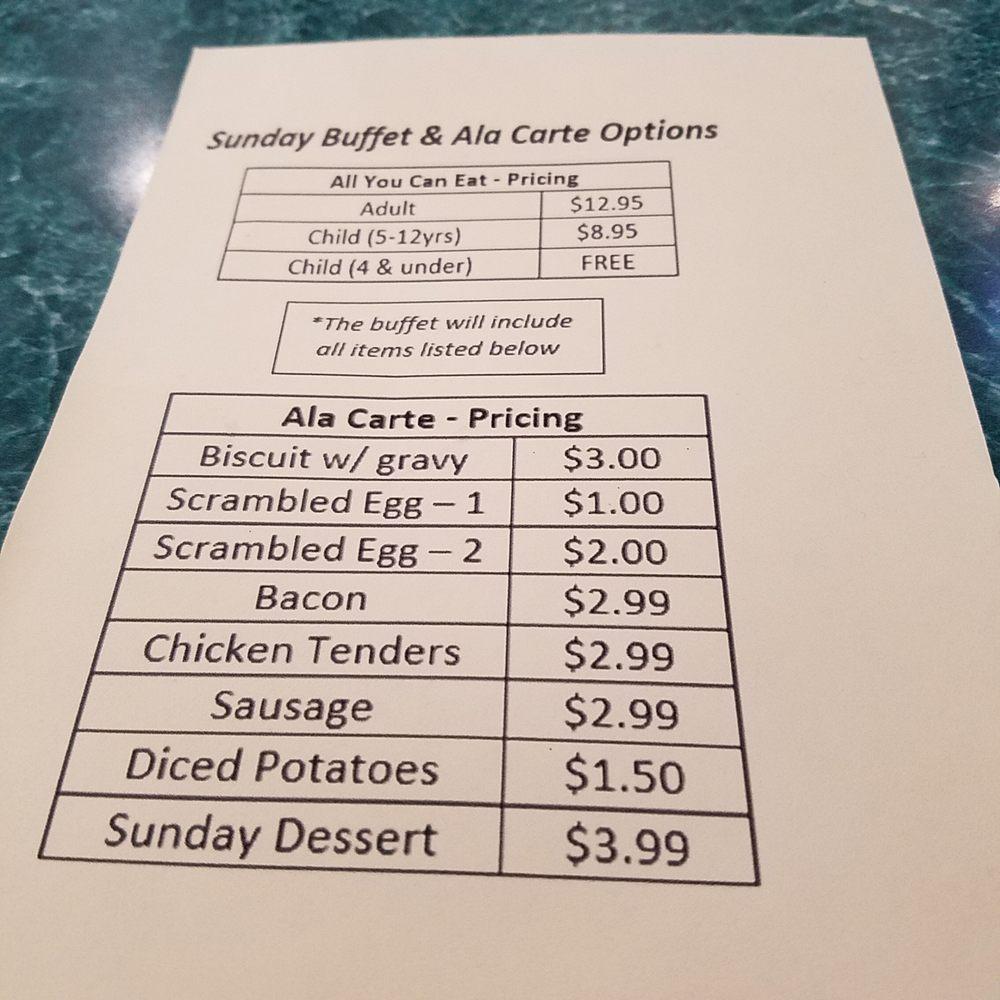 Sunday Buffet & Ala Carte Options
All You Can Eat - Pricing
Adult $12.95
Child (5-12yrs) $8.95
Child (4 & under) FREE
*The buffet will include
all items listed below
Ala Carte - Pricing
Biscuit w/ gravy $3.00
Scrambled Egg – 1 $1.00
Scrambled Egg – 2 $2.00
Bacon $2.99
Chicken Tenders $2.99
Sausage $2.99
Diced Potatoes $1.50
Sunday Dessert $3.99